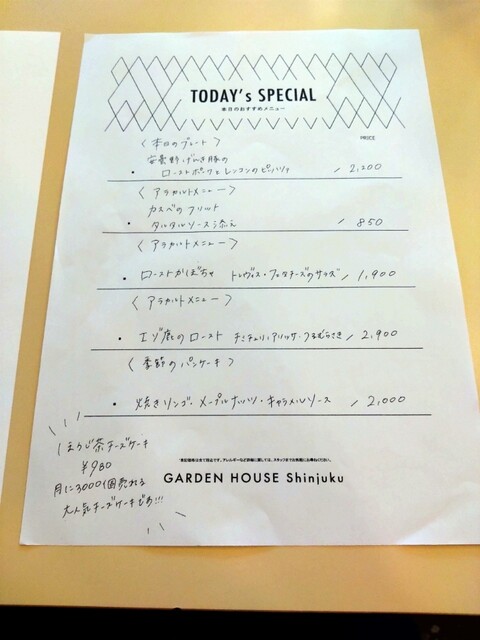 TODAY's SPECIAL
本日のおすすめメニュー
PRICE
〈本日のプレート〉
安曇野げんき豚の
・ローストポークとレンコンのピリハリア / 2,200
〈アラカルトメニュー〉
カスベのフリット
・タルタルソース添え / 850
〈アラカルトメニュー〉
・ローストかぼちゃ トレヴィス・フェタチーズのサラダ / 1,900
〈アラカルトメニュー〉
・エゾ鹿のロースト チミチュリ・アリッサ・ / 2,900
〈季節のパンケーキ〉
・焼きリンゴ・メープルナッツ・キャラメルソース / 2,000
ほうじ茶チーズケーキ
¥980
月に3000個売れる
大人気チーズケーキです!!!
GARDEN HOUSE Shinjuku